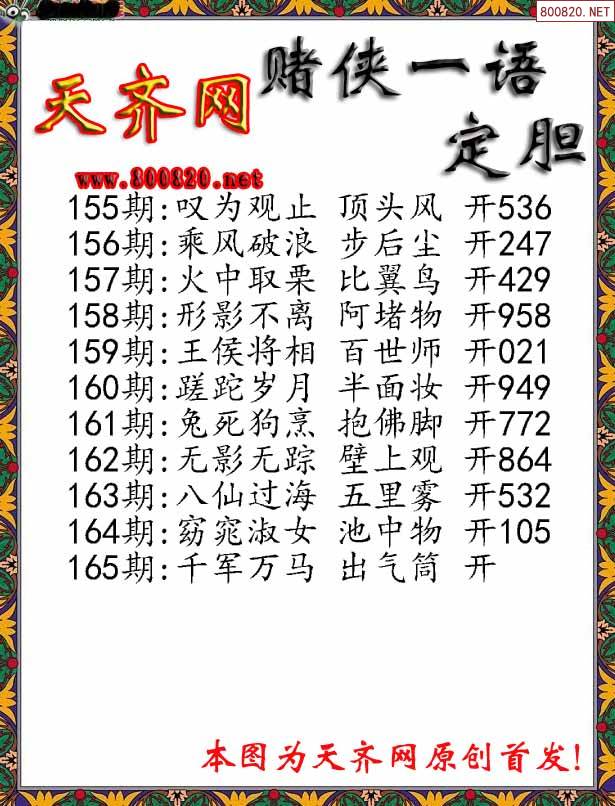 800820.NET
天齐网
赌侠一语
定胆
www.800820.net
155期:叹为观止 顶头风 开536
156期:乘风破浪 步后尘 开247
157期:火中取栗 比翼鸟 开429
158期:形影不离 阿堵物 开958
159期:王侯将相 百世师 开021
160期:蹉跎岁月 半面妆 开949
161期:兔死狗烹 抱佛脚 开772
162期:无影无踪 壁上观 开864
163期:八仙过海 五里雾 开532
164期:窈窕淑女 池中物 开105
165期:千军万马 出气筒 开
本图为天齐网原创首发!